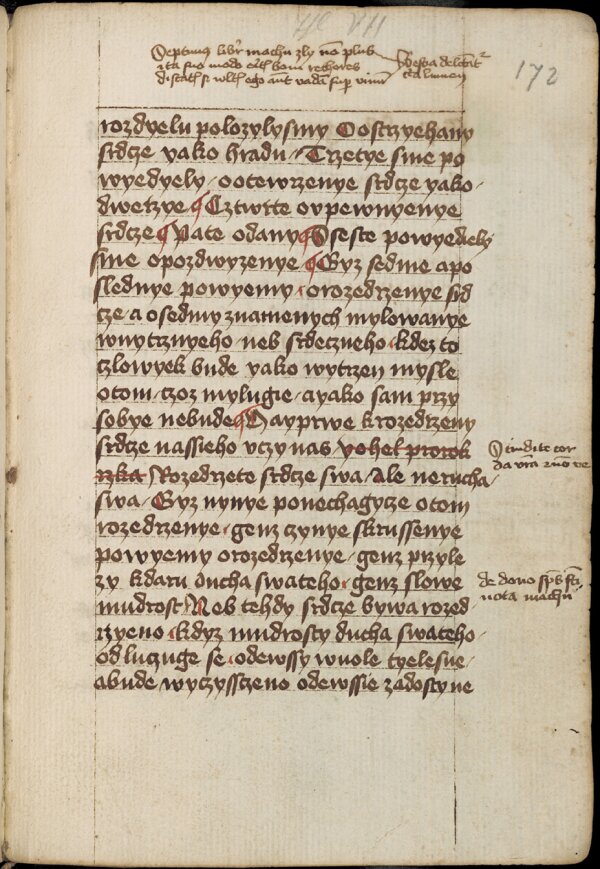 172
Septimus
rozdyelu polozylysmy O ostrzyehany
srdcze yako hradu Trzetye sme po
wyedyely o otewrzenye srdcze yako
dwerzye Cztwrte o vpewnyenye
srdcze Pate o dany O seste powyedyely
sme o pozdwyzenye Gyz sedme a po
slednye powyemy o rozedrzenye srd
cze a o sedmy znamenych mylowanye
wnytrznyeho neb srdeczneho kdez to
czlowyek bude yako wytrzen mysle
o tom czoz mylugie a yako sam przy
sobye nebude Nayprwe k rozedrzeny
srdcze nassieho vczy nas yohel prorok
rzka Rozedrzete srdcze swa Ale ne rucha
swa Gyz nynye ponechagycze o tom
rozedrzenye genz czynye skrussenye
powyemy o rozedrzenye genz przyle
zy k daru ducha swateho genz slowe
mudrost Neb tehdy srdcze bywa rozed
rzyeno kdyz mudrosty ducha swateho
odluczuge se odewssy wuole tyelesne
a bude wyczyssczeno odewssie zadosty ne
Scindite cor
da vestra
de dono
nota